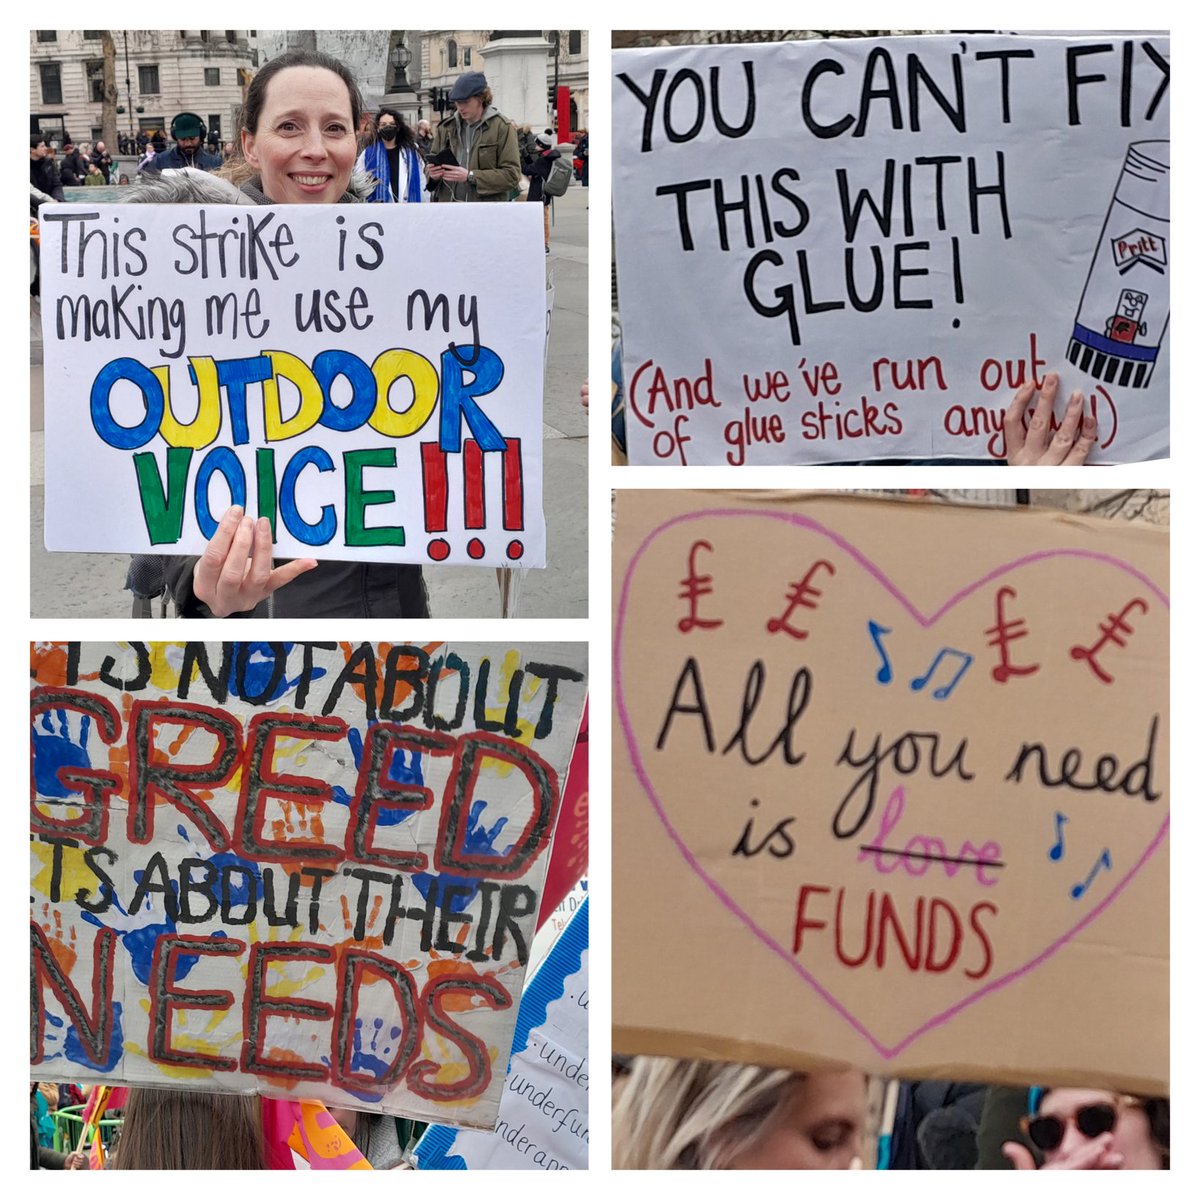 This strike is
making me use my
OUTDOOR
VOICE!!!
YOU CAN'T FIX
THIS WITH
GLUE!
Pritt
(And we've run out
of glue sticks anyway!)
ITS NOT ABOUT
GREED
ITS ABOUT THEIR
NEEDS
£ £ £ £
All you need
is love
FUNDS